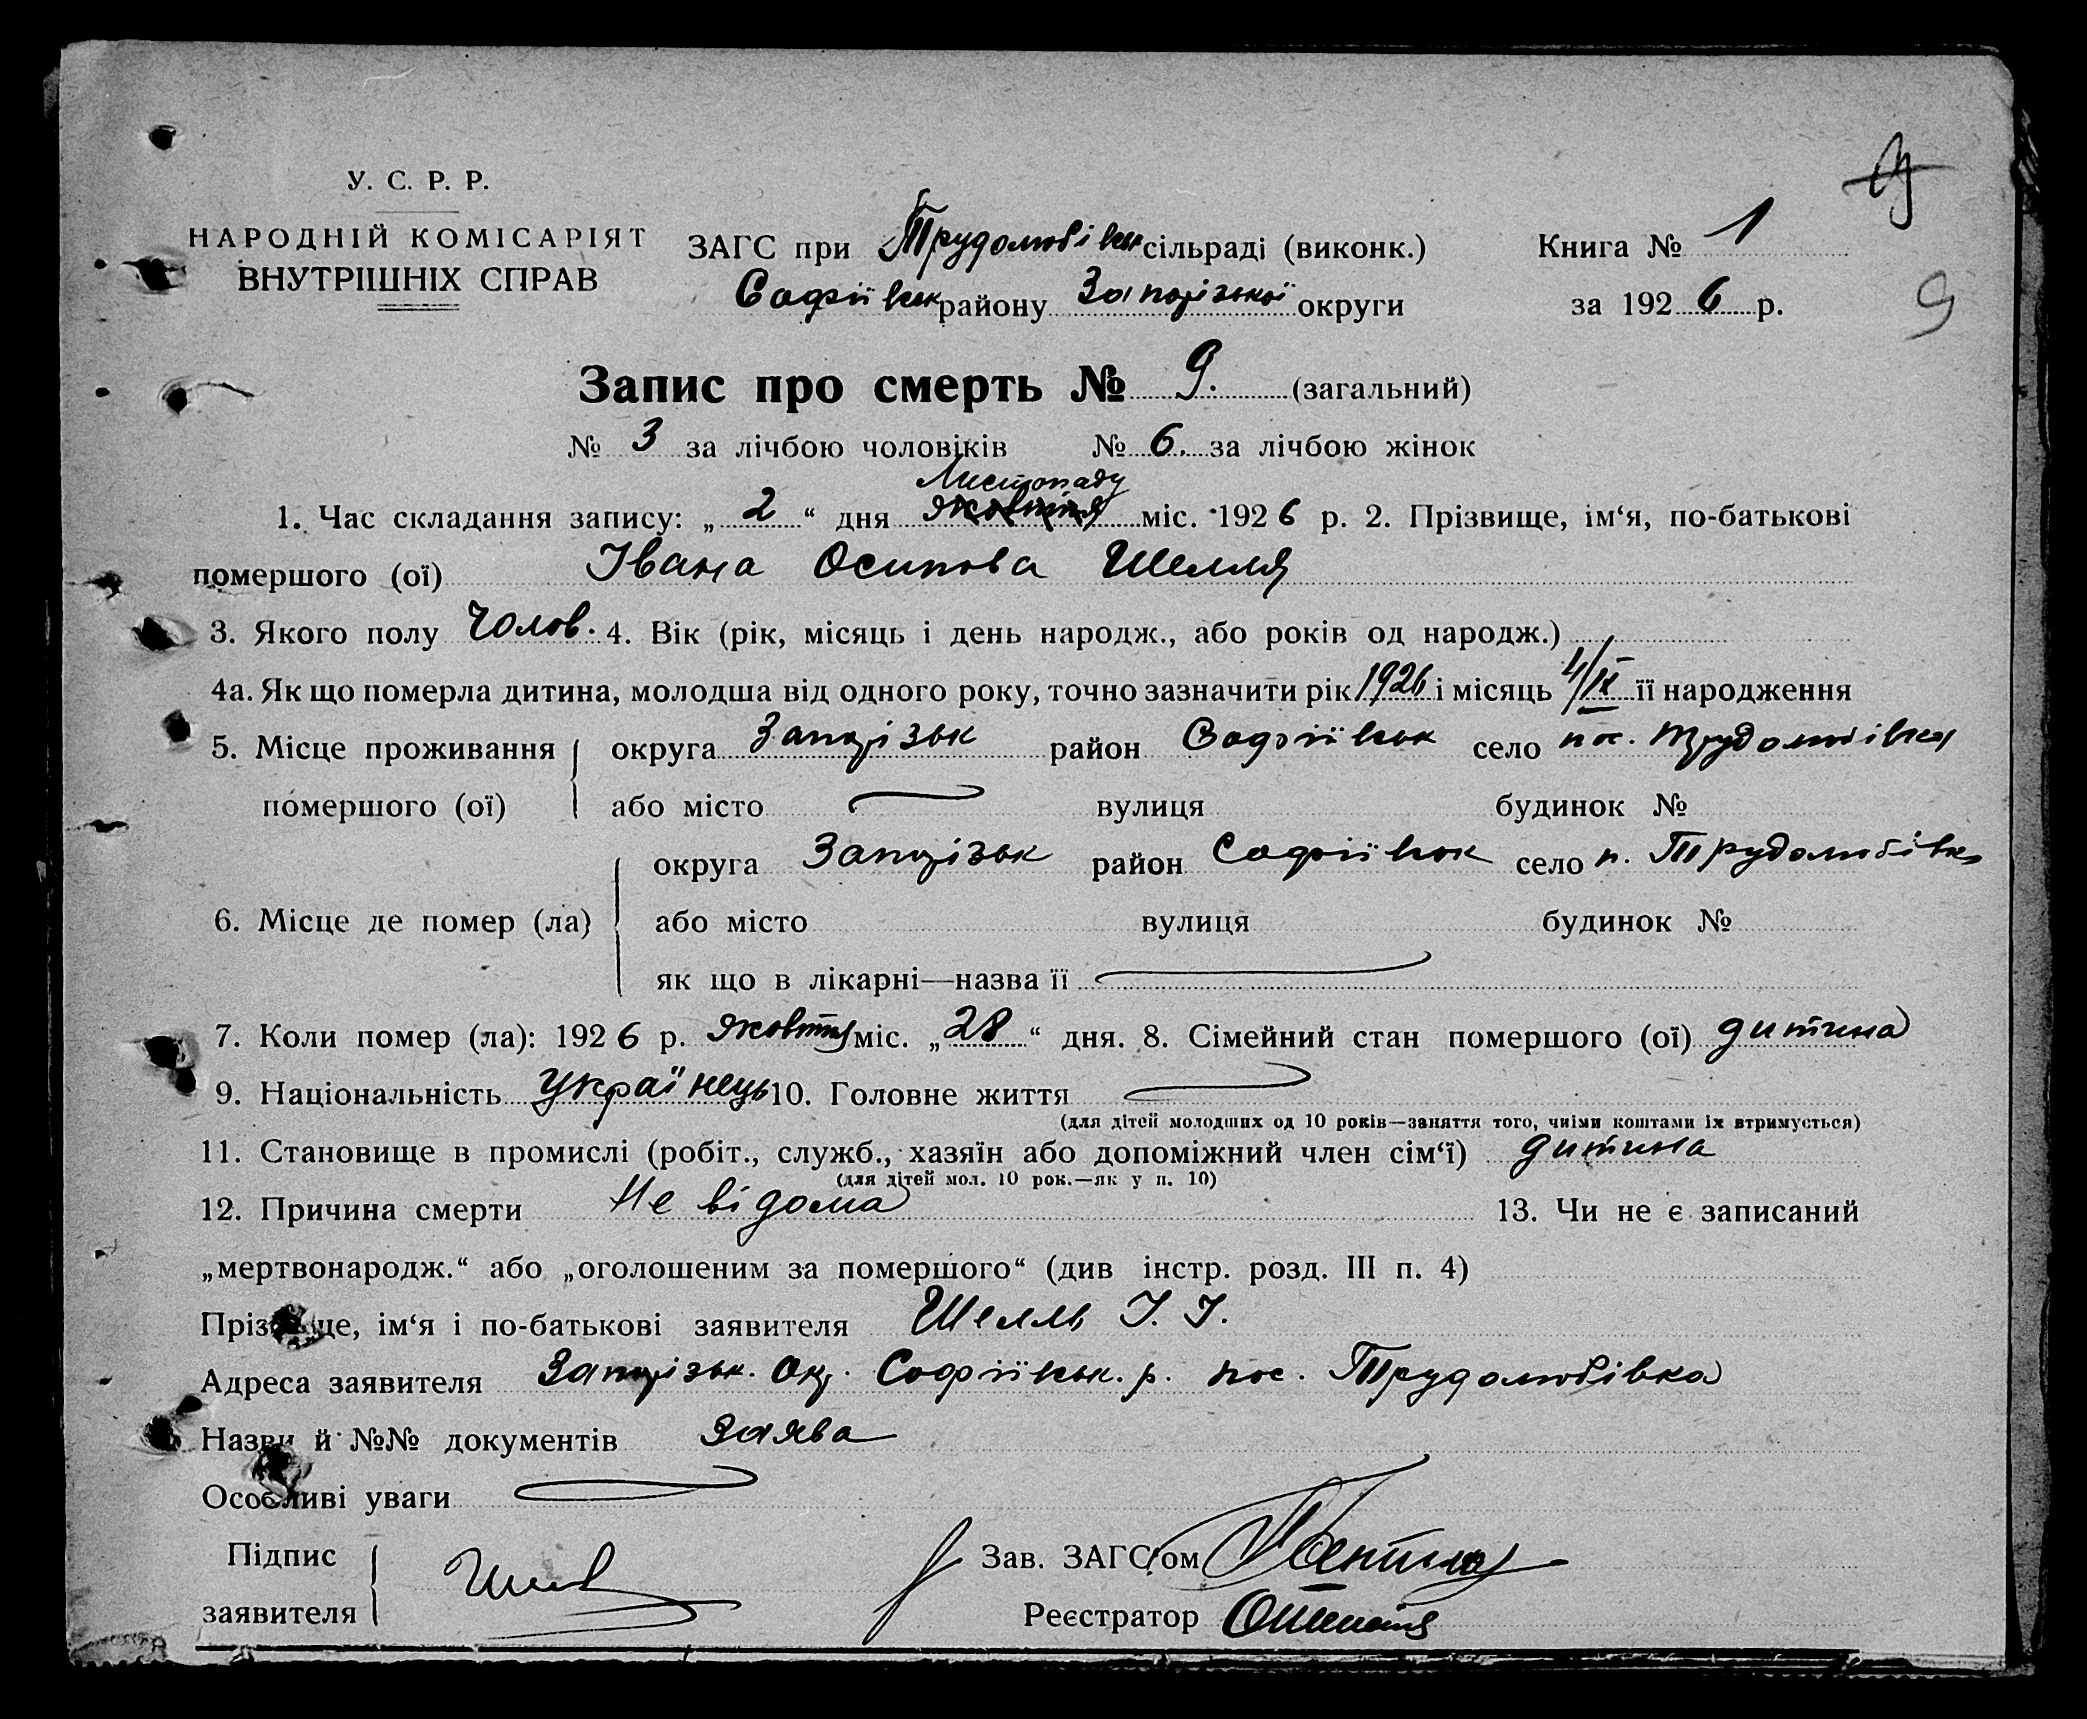 У. С. Р. Р.
НАРОДНІЙ КОМІСАРІЯТ
ВНУТРІШНІХ СПРАВ
ЗАГС при Трудолюбівськ сільраді (виконк.)
Софіївськ району Запорізької округи
Книга № 1
за 1926 р.
9
Запис про смерть № 9. (загальний)
№ 3 за лічбою чоловіків № 6. за лічбою жінок
Листопаду
1. Час складання запису: „2“ дня жовтня міс. 1926 р. 2. Прізвище, ім‘я, по-батькові
помершого (ої) Івана Осипова Шелля
3. Якого полу Чолов. 4. Вік (рік, місяць і день народж., або років од народж.)
4а. Як що померла дитина, молодша від одного року, точно зазначити рік 1926 і місяць 4/IX її народження
5. Місце проживання помершого (ої) округа Запорізьк район Софіївськ село пос. Трудолюбівка
або місто вулиця будинок №
6. Місце де помер (ла) округа Запорізьк район Софіївськ село п. Трудолюбівка
або місто вулиця будинок №
як що в лікарні—назва її
7. Коли помер (ла): 1926 р. жовтня міс. „28“ дня. 8. Сімейний стан помершого (ої) дитина
9. Національність Українець 10. Головне життя
(для дітей молодших од 10 років—заняття того, чиїми коштами їх втримується)
11. Становище в промислі (робіт., служб., хазяїн або допоміжний член сім‘ї) дитина
(для дітей мол. 10 рок.—як у п. 10)
12. Причина смерти Не відома 13. Чи не є записаний
„мертвонародж.“ або „оголошеним за помершого“ (див інстр. розд. III п. 4)
Прізвище, ім‘я і по-батькові заявителя Шелль І. І.
Адреса заявителя Запорізьк. Окр. Софіївськ. р. пос. Трудолюбівка
Назви й №№ документів Заява
Особливі уваги
Підпис заявителя
Зав. ЗАГС‘ом
Реєстратор